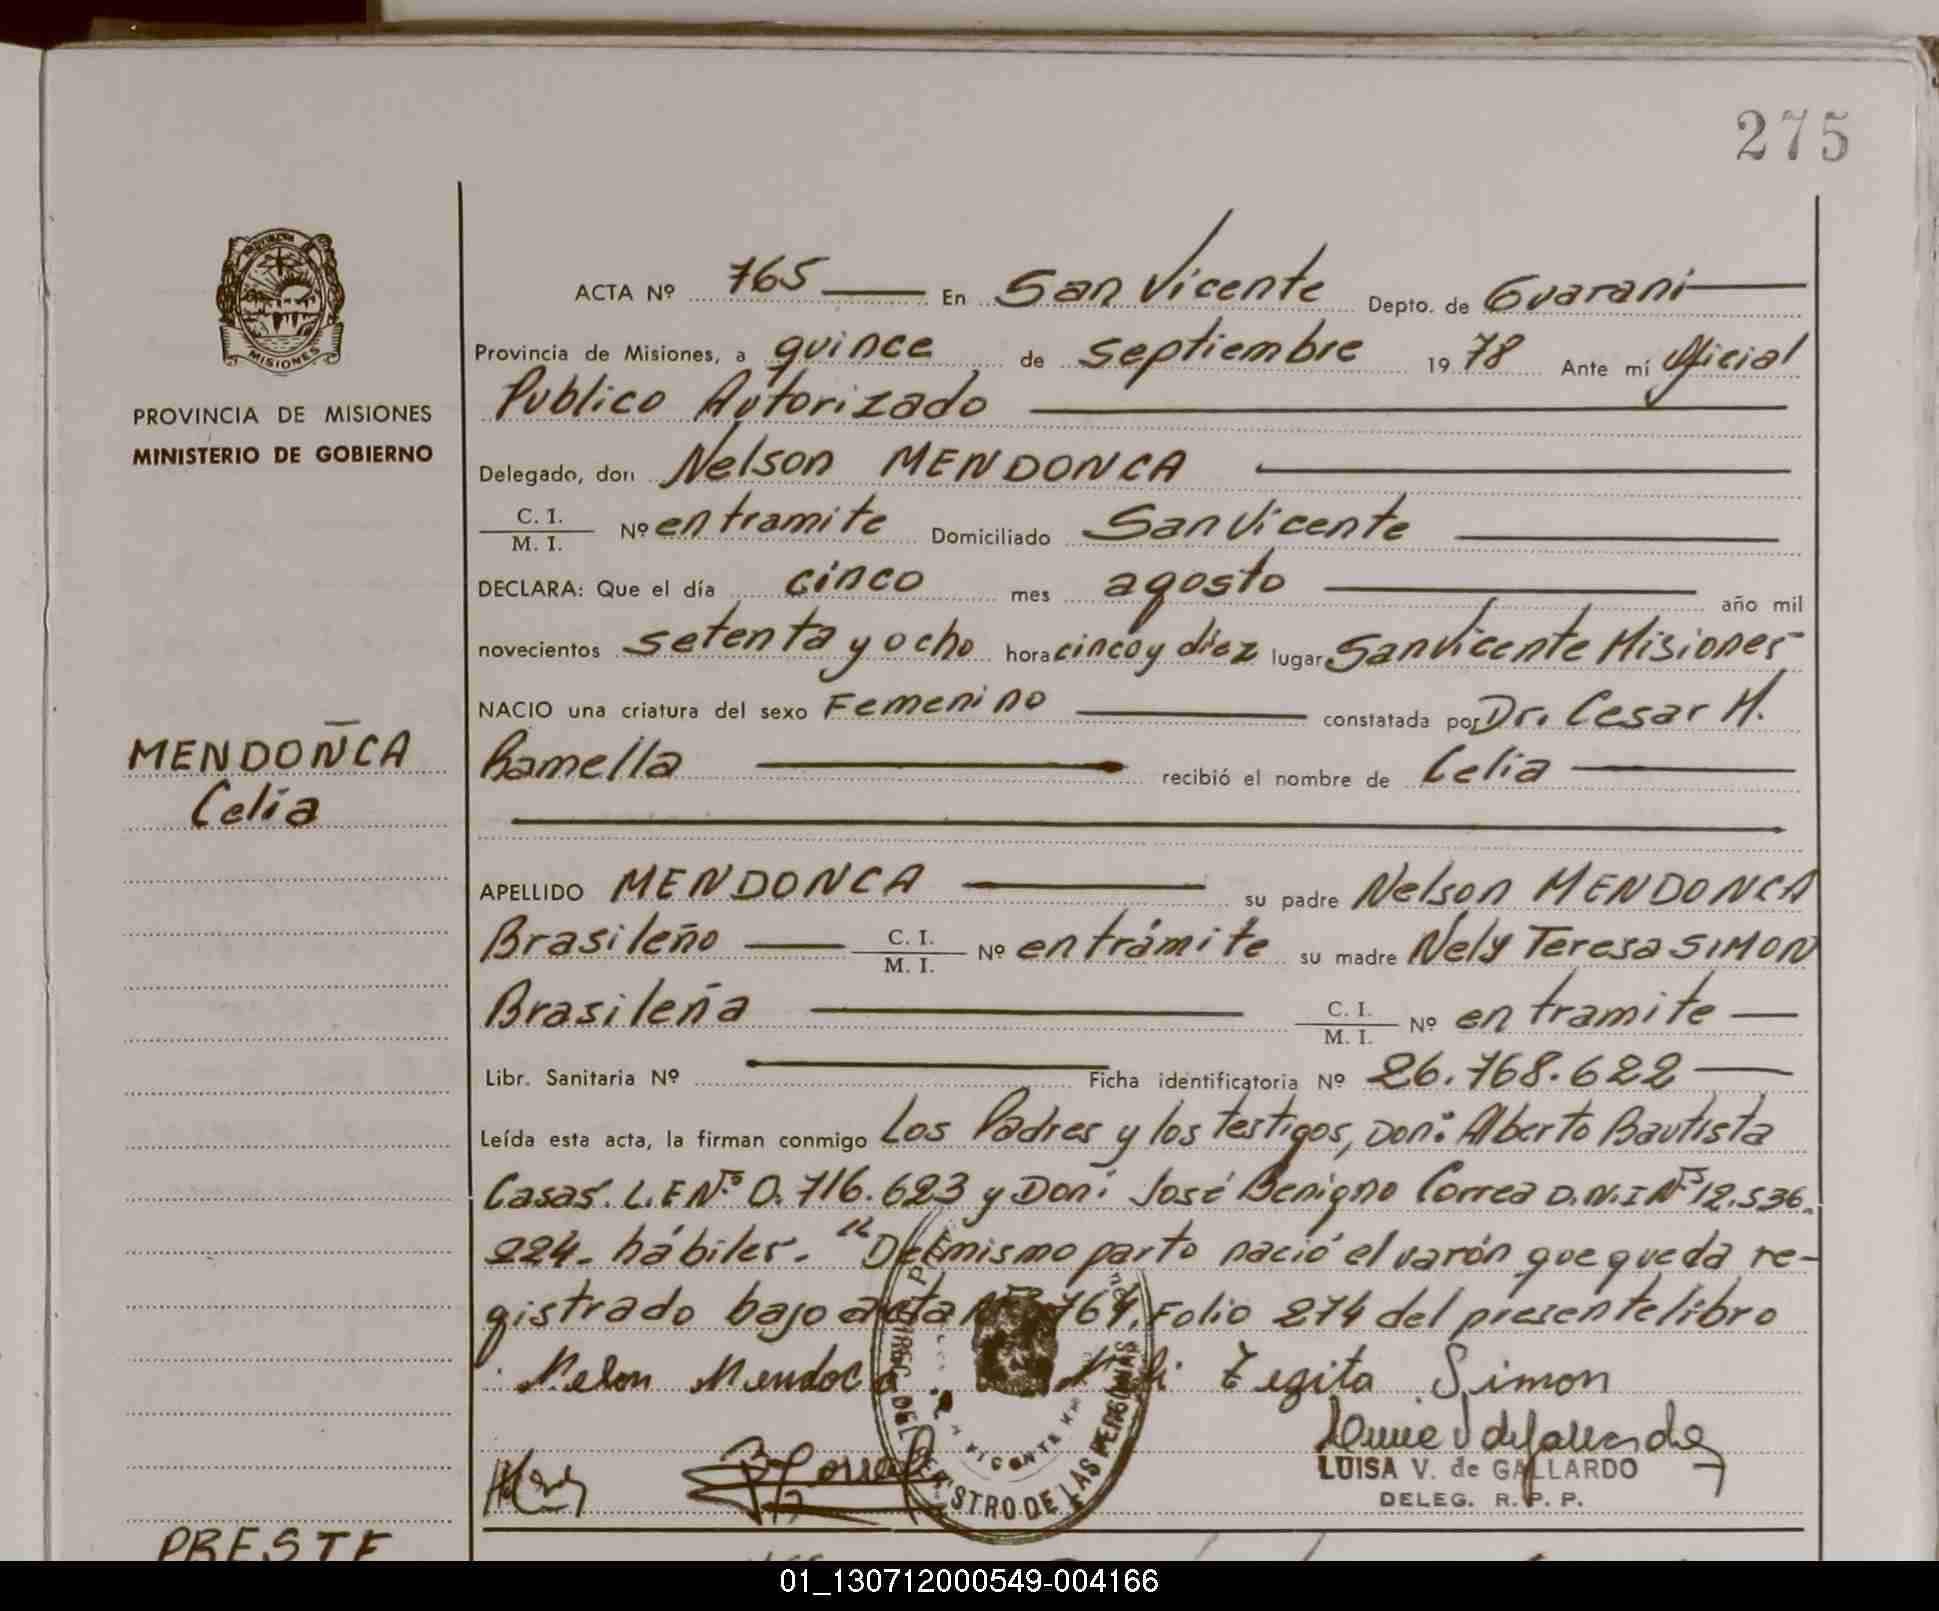 275
MISIONES
PROVINCIA DE MISIONES
MINISTERIO DE GOBIERNO
MENDOÑCA
Celia
ACTA Nº 765 En San Vicente Depto. de Guarani
Provincia de Misiones, a quince de septiembre 1978 Ante mí Oficial
Publico Autorizado
Delegado, don Nelson MENDONCA
C. I. / M. I. Nº en tramite Domiciliado San Vicente
DECLARA: Que el día cinco mes agosto año mil
novecientos setenta y ocho hora cinco y diez lugar San Vicente Misiones
NACIO una criatura del sexo Femenino constatada por Dr. Cesar H.
Ramella recibió el nombre de Celia
APELLIDO MENDONCA su padre Nelson MENDONCA
Brasileño C. I. / M. I. Nº en trámite su madre Nely Teresa SIMON
Brasileña C. I. / M. I. Nº en tramite
Libr. Sanitaria Nº Ficha identificatoria Nº 26.768.622
Leída esta acta, la firman conmigo Los Padres y los testigos, Don: Alberto Bautista
Casas. L.E Nº 0.716.623 y Don: José Benigno Correa D.N.I Nº 12.536.
224. hábiles. "Del mismo parto nació el varón que queda re-
gistrado bajo acta Nº 764. Folio 274 del presente libro
Nelson Mendoca Neli Tegita Simon
DEL REGISTRO DE LAS PERSONAS
LUISA V. de GALLARDO
DELEG. R. P. P.
PRESTE
01_130712000549-004166